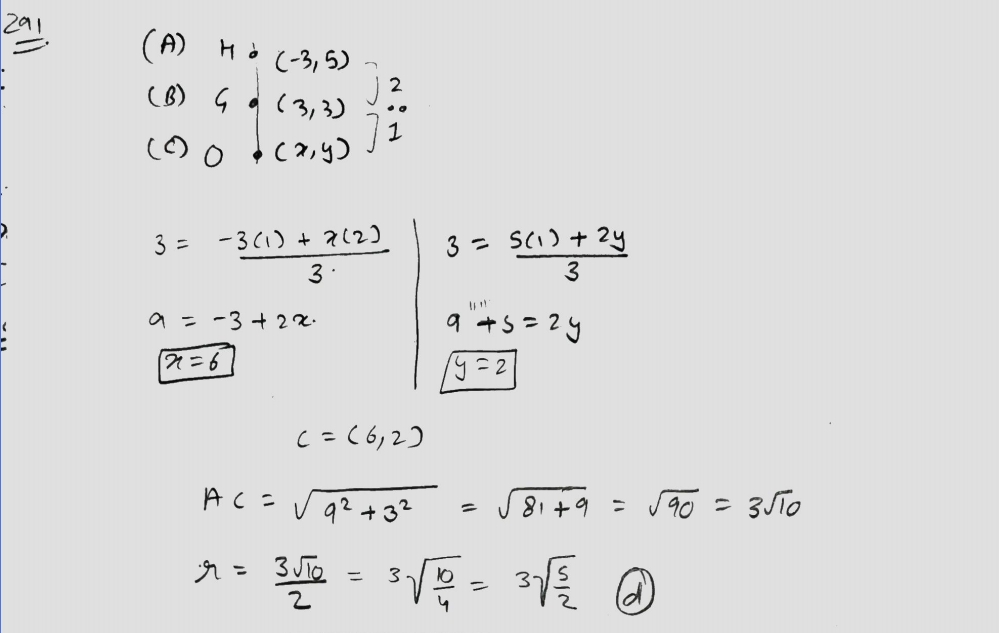 291
(A) H (-3,5)
2
(B) G (3,3)
:
1
(C) O (x,y)
3 = (-3(1) + x(2))/3
9 = -3 + 2x
x = 6
3 = (5(1) + 2y)/3
9 + 5 = 2y
y = 2
C = (6,2)
AC = √(9² + 3²) = √(81 + 9) = √90 = 3√10
r = 3√10/2 = 3√(10/4) = 3√(5/2) (d)